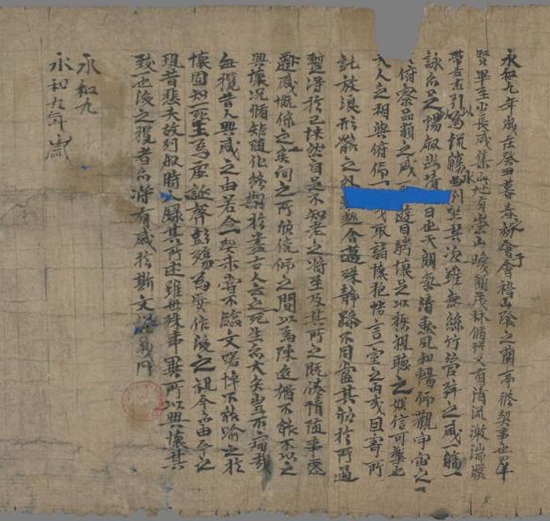 永和九年歲在癸丑暮春初會于會稽山陰之蘭亭脩禊事也羣
賢畢至少長咸集此地有崇山峻嶺茂林脩竹又有清流激湍暎
帶左右引以為流觴曲水列坐其次雖無絲竹管絃之盛一觴一
詠亦足暢敘幽情日也天朗氣清惠風和暢仰觀宇宙之
俯察品類之盛遊目騁懷足以極視聽之娛信可樂也
夫人之相與俯仰一或取諸懷抱悟言一室之內或因寄所
託放浪形骸之外趣舍萬殊靜躁不同當其欣於所遇
暫得於己怏然自足不知老之將至及其所之既惓情隨事遷
感慨係之矣向之所欣俛仰之間以為陳迹猶不能不以之
興懷況脩短隨化終期於盡古人云死生亦大矣豈不痛哉
每攬昔人興感之由若合一契未嘗不臨文嗟悼不能喻之於
懷固知一死生為虛誕齊彭殤為妄作後之視今亦由今之
視昔悲夫故列敘時人錄其所述雖世殊事異所以興懷其
致一也後之覽者亦將有感於斯文
永和九
永和九年歲